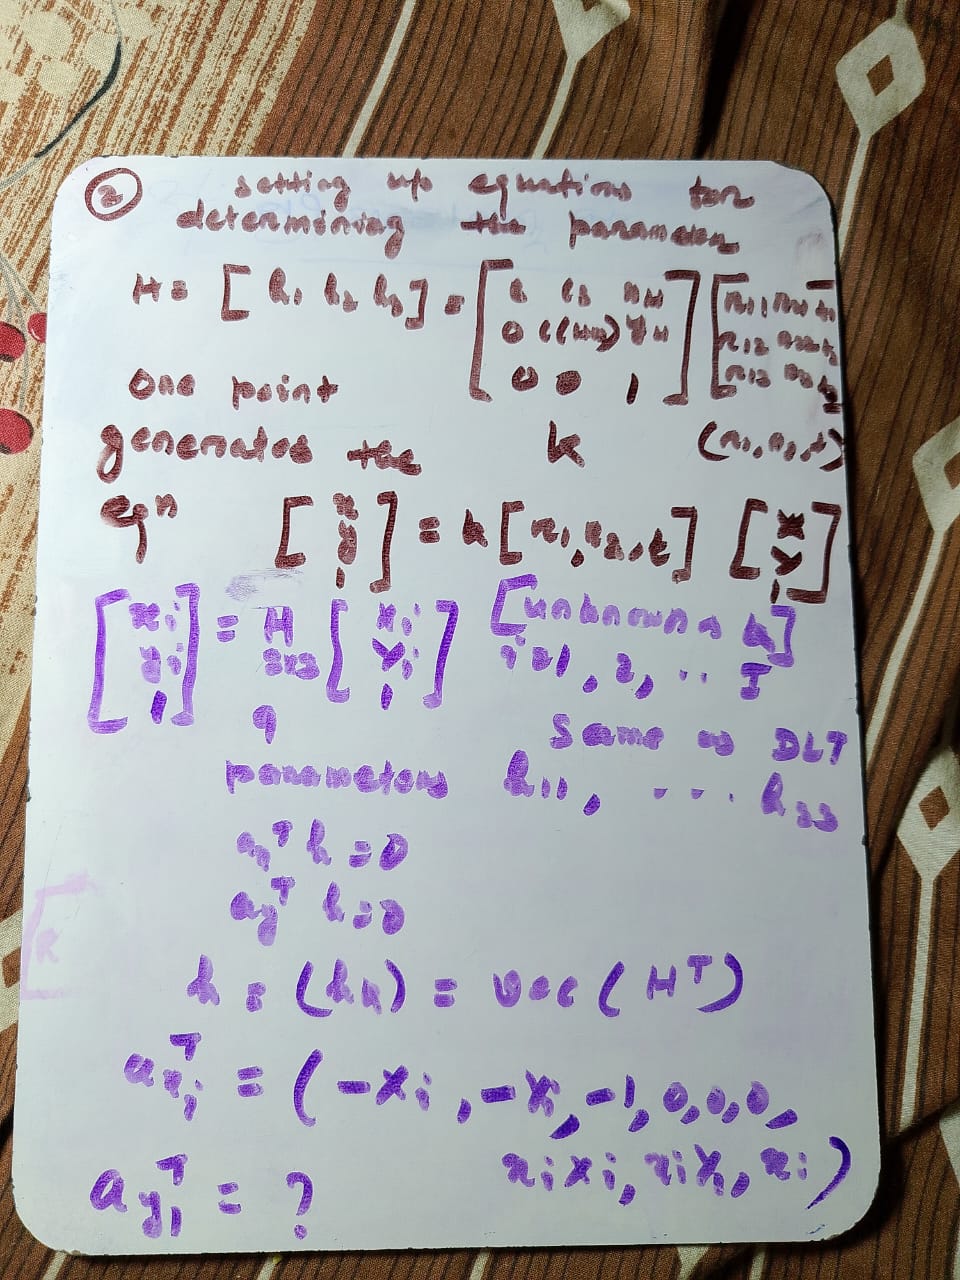 ② setting up equations for
determining the parameters
H = [ h₁ h₂ h₃ ] = [ c cs xH
0 c(1+m) yH
0 0 1 ] [ r11 r21 t1
r12 r22 t2
r13 r23 t3 ]
one point
generates the K (r1, r2, t)
eqn [ x
y
1 ] = K [ r1, r2, t ] [ X
Y
1 ]
[ xi
yi
1 ] = H 3x3 [ Xi
Yi
1 ] [unknowns K]
i=1, 2, .. I
9 same as DLT
parameters h11, .... h33
axᵀ h = 0
ayᵀ h = 0
h = (hk) = vec (Hᵀ)
axiᵀ = ( -Xi, -Yi, -1, 0, 0, 0,
xiXi, xiYi, xi )
ayiᵀ = ?